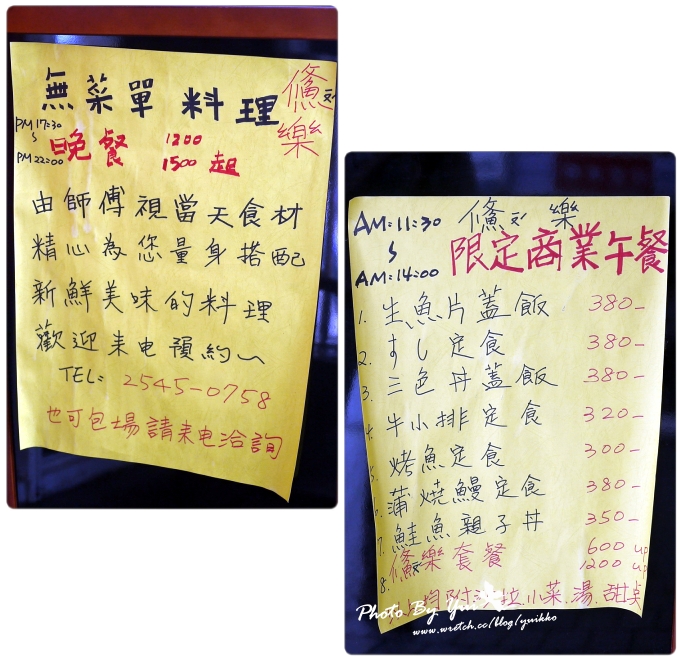 無菜單料理
樂
PM 17:30
~
PM 22:00
晚餐
1200
1500 起
由師傅視當天食材
精心為您量身搭配
新鮮美味的料理
歡迎来电預約~
TEL: 2545-0758
也可包場請来电洽詢
AM:11:30
~
AM:14:00
樂
限定商業午餐
1. 生魚片蓋飯 380-
2. すし定食 380-
3. 三色丼蓋飯 380-
4. 牛小排定食 320-
5. 烤魚定食 300-
6. 蒲燒鰻定食 380-
7. 鮭魚親子丼 350-
8. 樂套餐 600 up
1200 up
附沙拉.小菜.湯.甜点
Photo By
www.wretch.cc/blog/yuikko